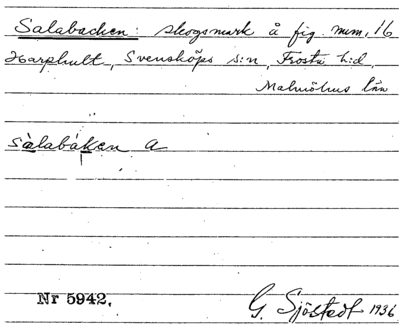 Salabacken: skogsmark å fig. num. 16
Harphult, Svensköps s:n, Frosta h:d,
Malmöhus län
sàlabákan a
Nr 5942.
G. Sjöstedt 1936